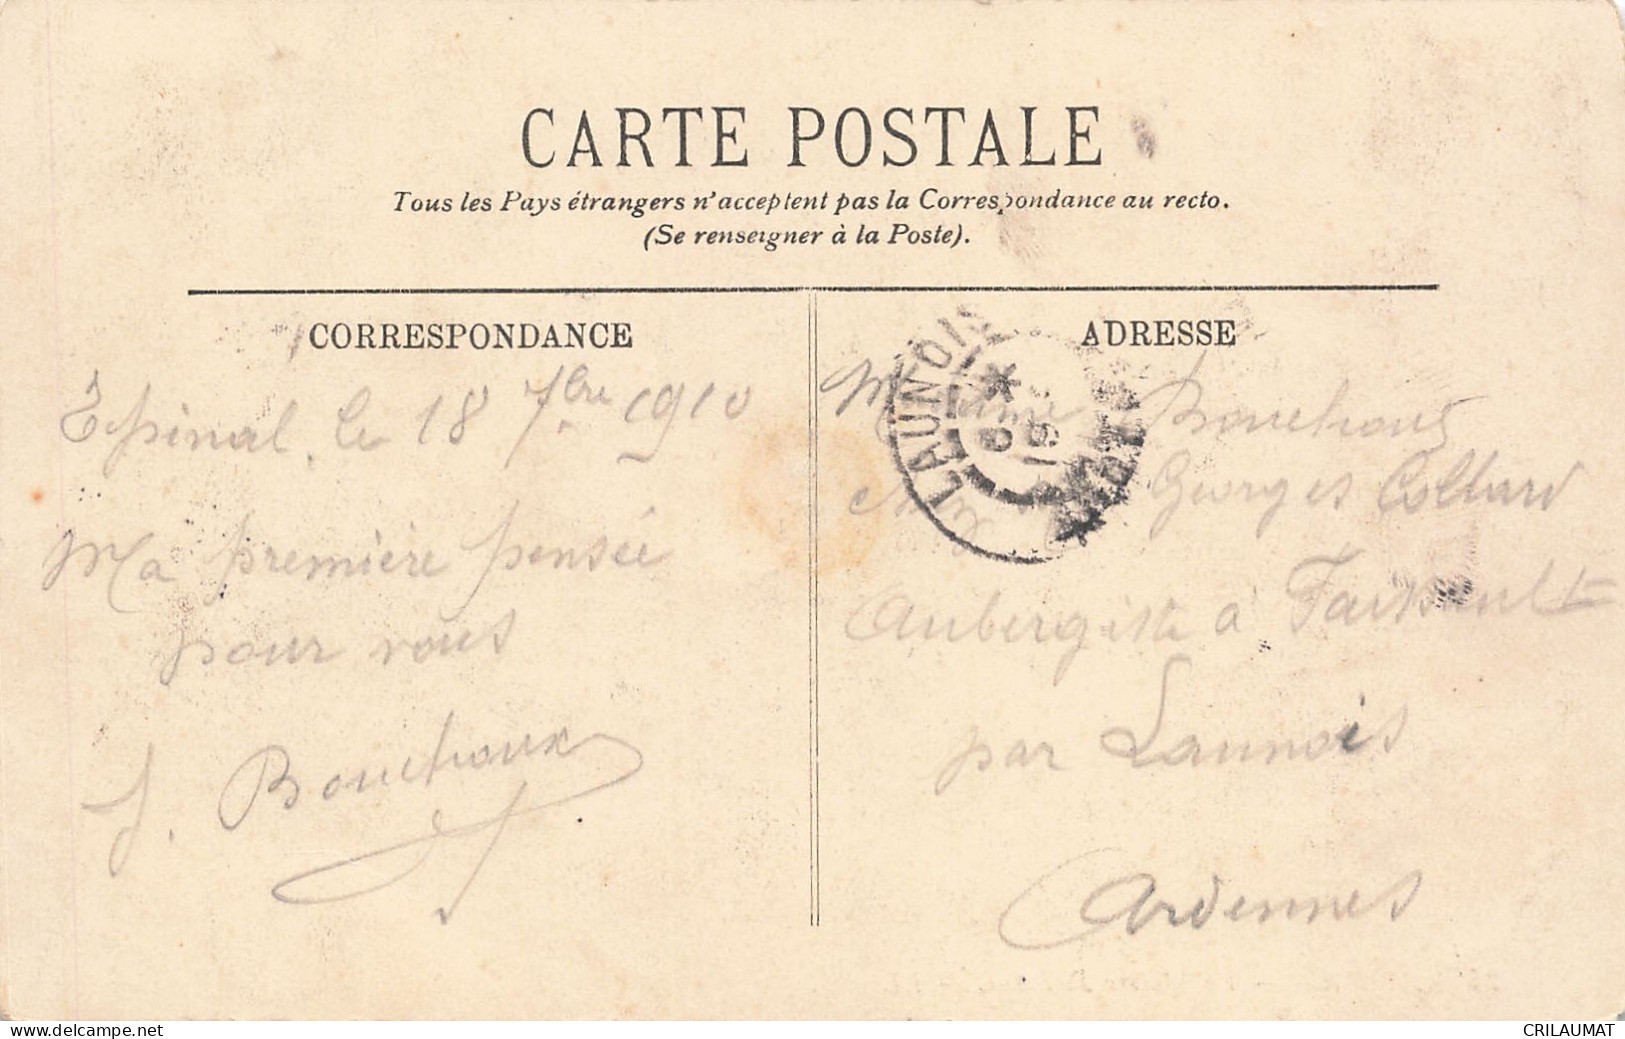 CARTE POSTALE
Tous les Pays étrangers n'acceptent pas la Correspondance au recto.
(Se renseigner à la Poste).
CORRESPONDANCE
Epinal, le 18 7bre 1910
Ma première pensée
pour vous
J. Bouchoux
ADRESSE
Madame Bouchoux
Georges Collard
Aubergiste à Faissault
par Launois
Ardennes
LAUNOIS
8 *
19
delcampe.net
CRILAUMAT